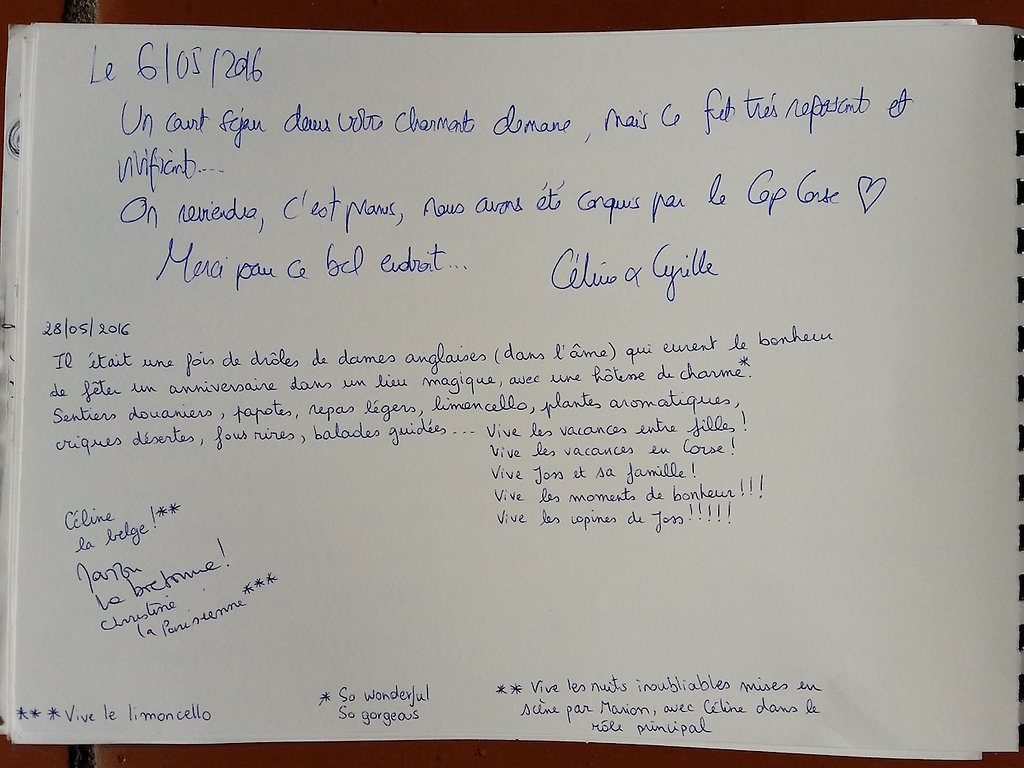 Le 6/05/2016
Un court séjour dans votre charmant domaine, mais ce fut très reposant et
vivifiant....
On reviendra, c'est promis, nous avons été conquis par le Cap Corse ♡
Merci pour ce bel endroit...
Céline & Cyrille
28/05/2016
Il était une fois de drôles de dames anglaises (dans l'âme) qui eurent le bonheur
de fêter un anniversaire dans un lieu magique, avec une hôtesse de charme*.
Sentiers douaniers, papotes, repas légers, limoncello, plantes aromatiques,
criques désertes, fous rires, balades guidées... Vive les vacances entre filles!
Vive les vacances en Corse!
Vive Joss et sa famille!
Vive les moments de bonheur!!!
Vive les copines de Joss!!!!!
Céline
la belge!**
Marion
la bretonne!
Christine
la Parisienne***
*** Vive le limoncello
* So wonderful
So gorgeous
** Vive les nuits inoubliables mises en
scène par Marion, avec Céline dans le
rôle principal